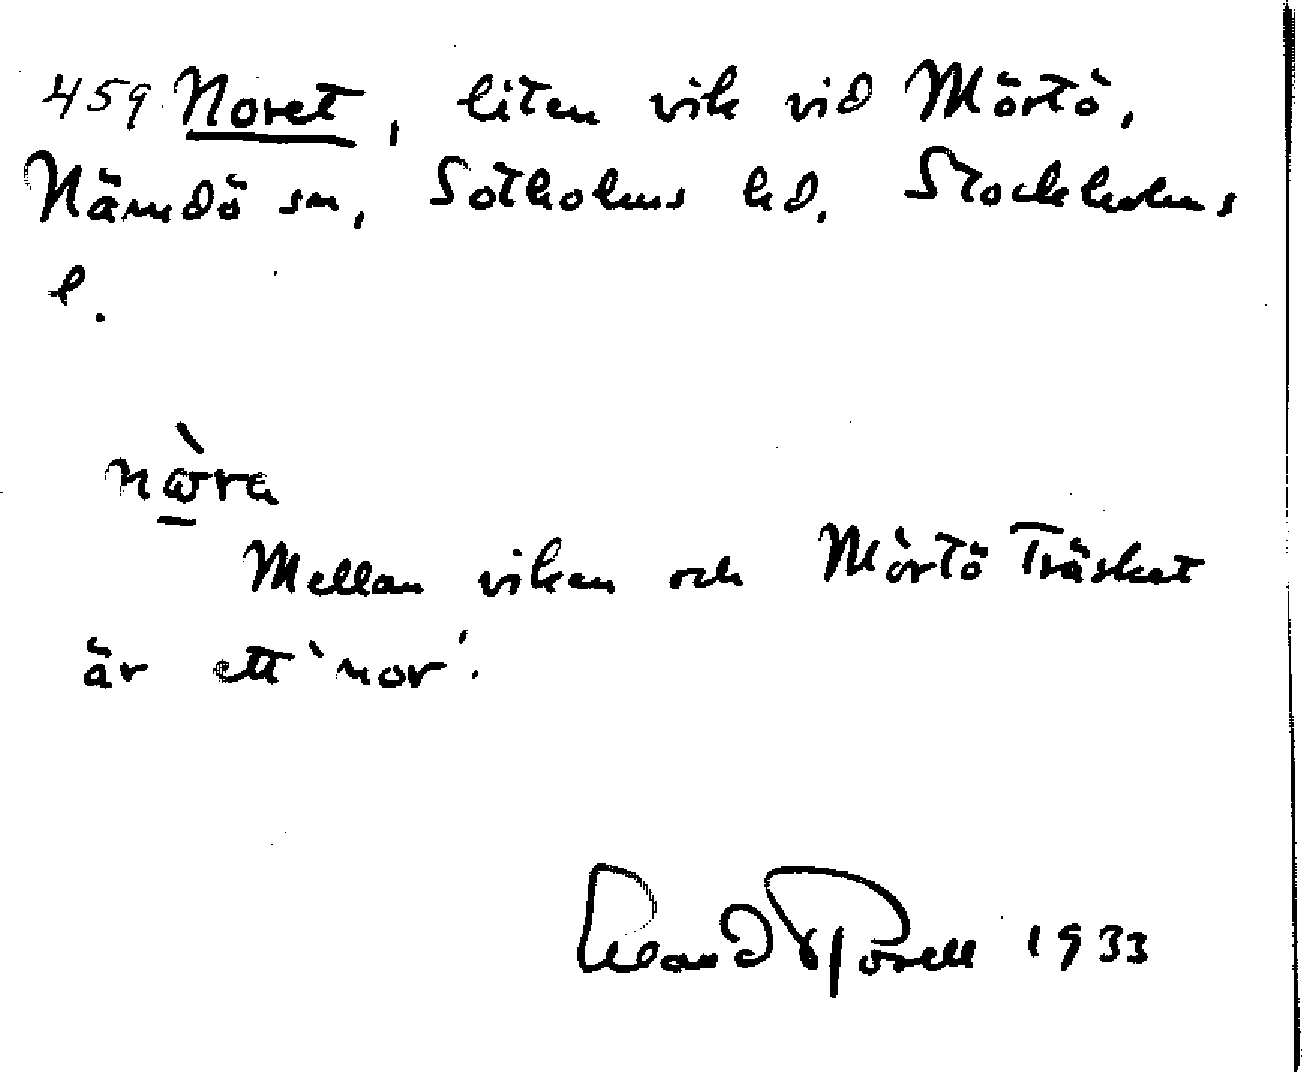 459 Noret, liten vik vid Mörtö,
Nämdö sn, Sotholms hd. Stockholms
l.
nὼra
Mellan viken och Mörtö Träsket
är ett `nor´.
1933